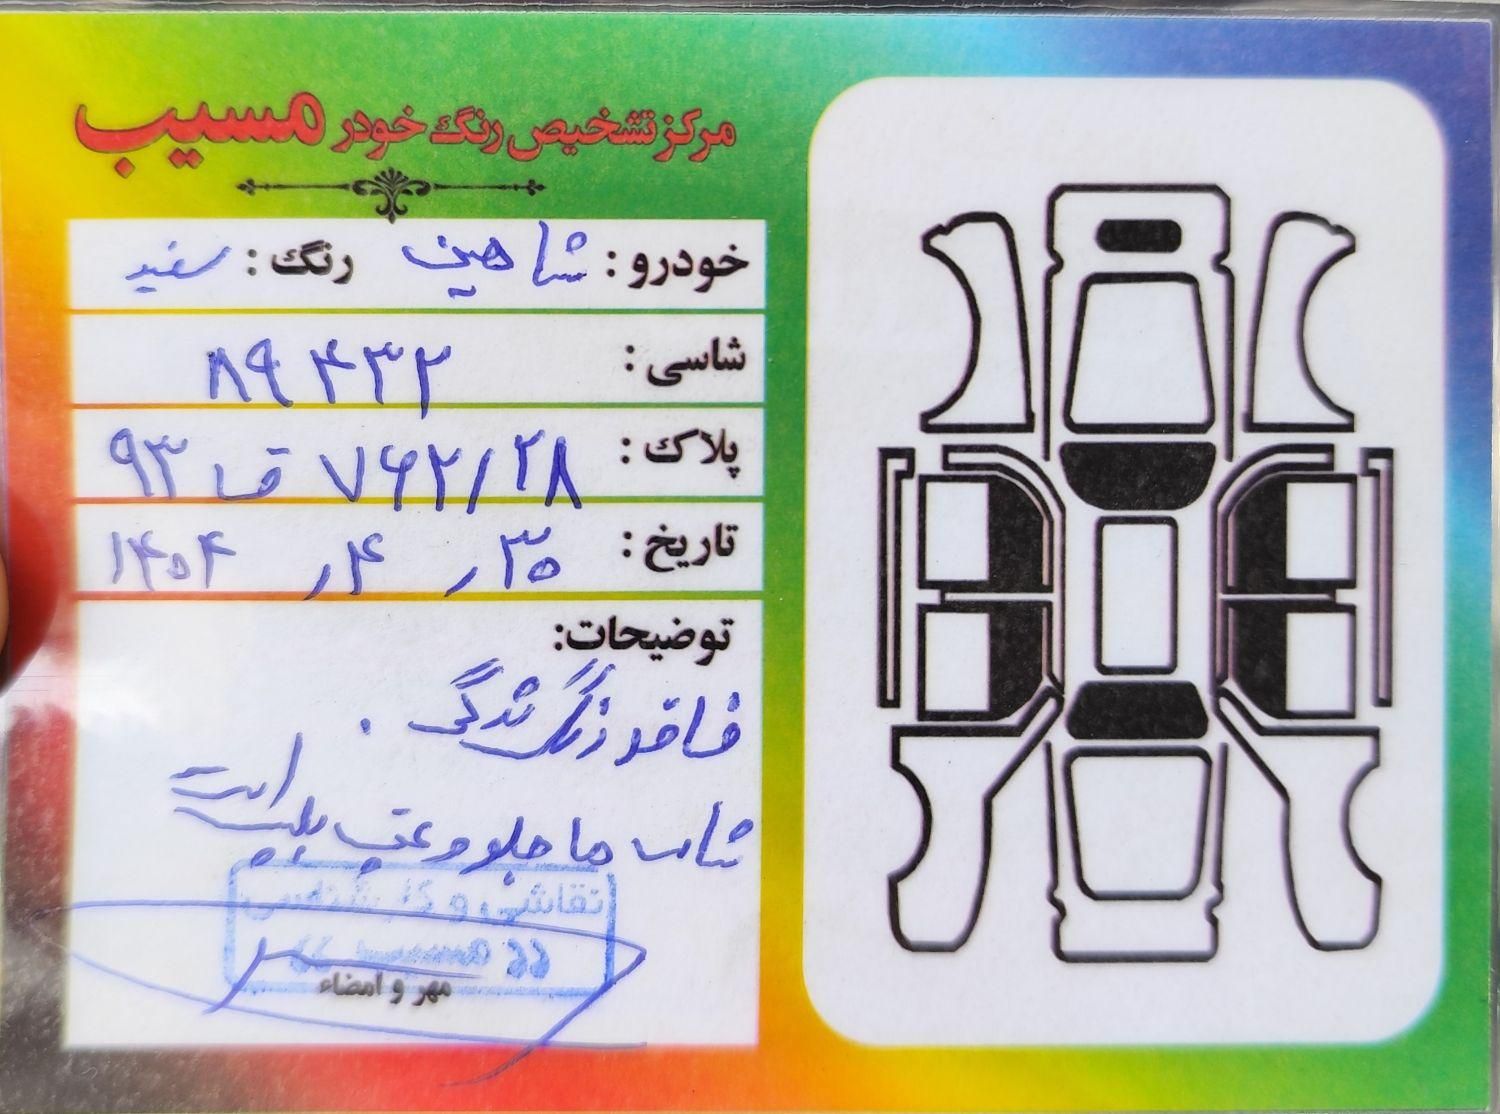 مرکز تشخیص رنگ خودر مسیب
خودرو : شاهین رنگ : سفید
شاسی : ۸۹۴۳۲
پلاک : ۹۳ قا ۷۶۲/۲۸
تاریخ : ۳۰ ر ۴ ر ۱۴۰۴
توضیحات:
فاقد رنگ شدگی .
شاسی ها جلو و عقب پلمپ است
نقاشی و کارشناسی
مسیب
مهر و امضاء